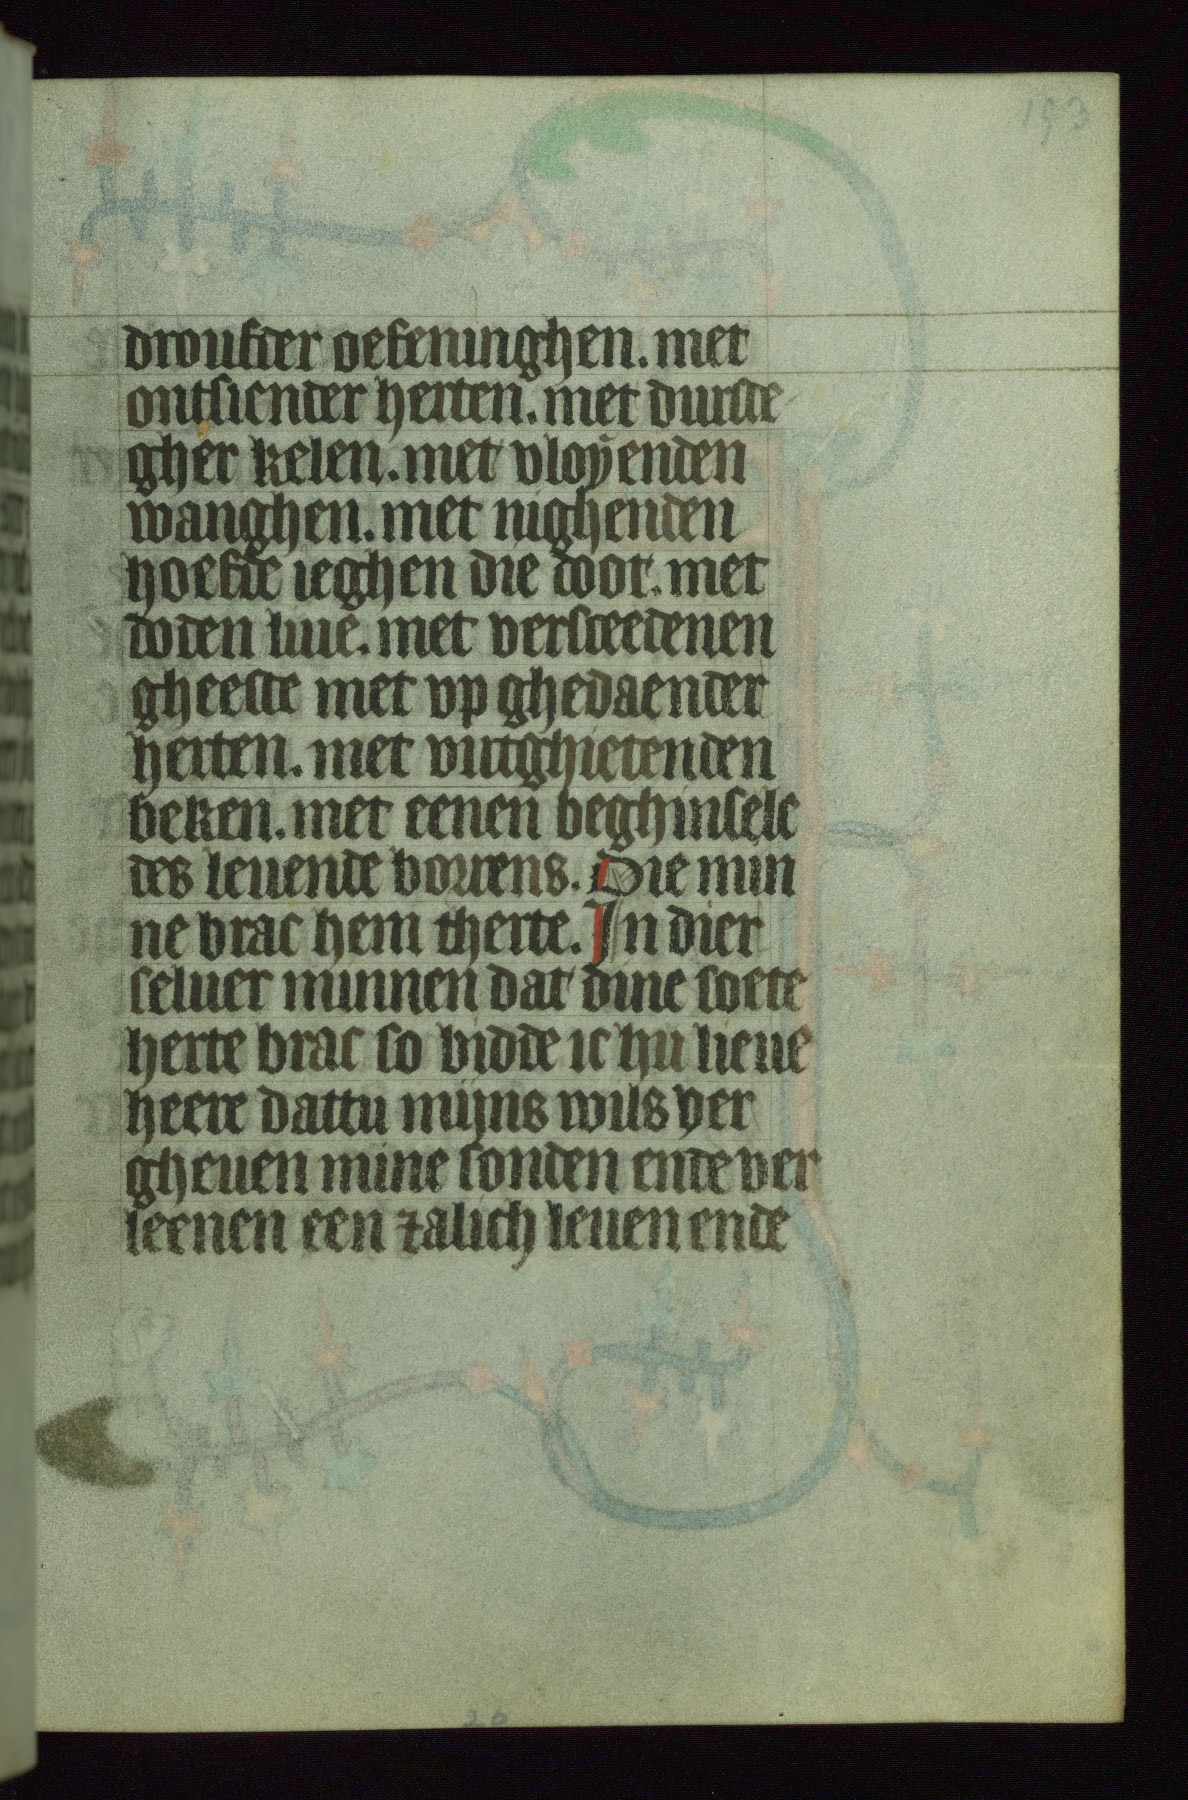 193
droufder oefeninghen. met
ontsiender herten. met durste
gher kelen. met vloyenden
wanghen. met nighenden
hoefde ieghen die doot. met
doden liuē. met versceedenen
gheeste met vp ghedaender
herten. met vutghietenden
beken. met eenen beghinsele
des leuende bornens. Die min
ne brac hem therte. In dier
seluer minnen dat dine soete
herte brac so bidde ic hu lieue
heere dattu mijns wils ver
gheuen mine sonden ende ver
leenen een zalich leuen ende